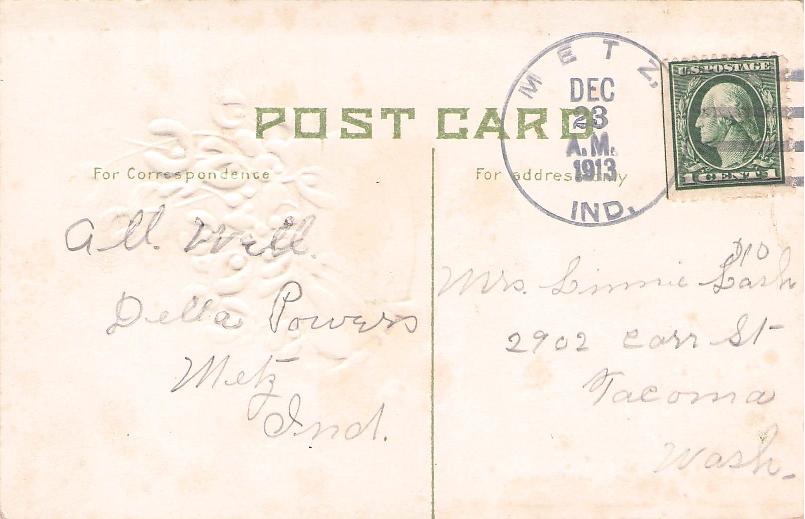 POST CARD
METZ,
DEC
23
A.M.
1913
IND.
U.S. POSTAGE
1 CENT 1
For Correspondence
For address only
All Well.
Della Powers
Metz
Ind.
$10
Mrs. Linnie Lash
2902 Carr St
Tacoma
Wash.